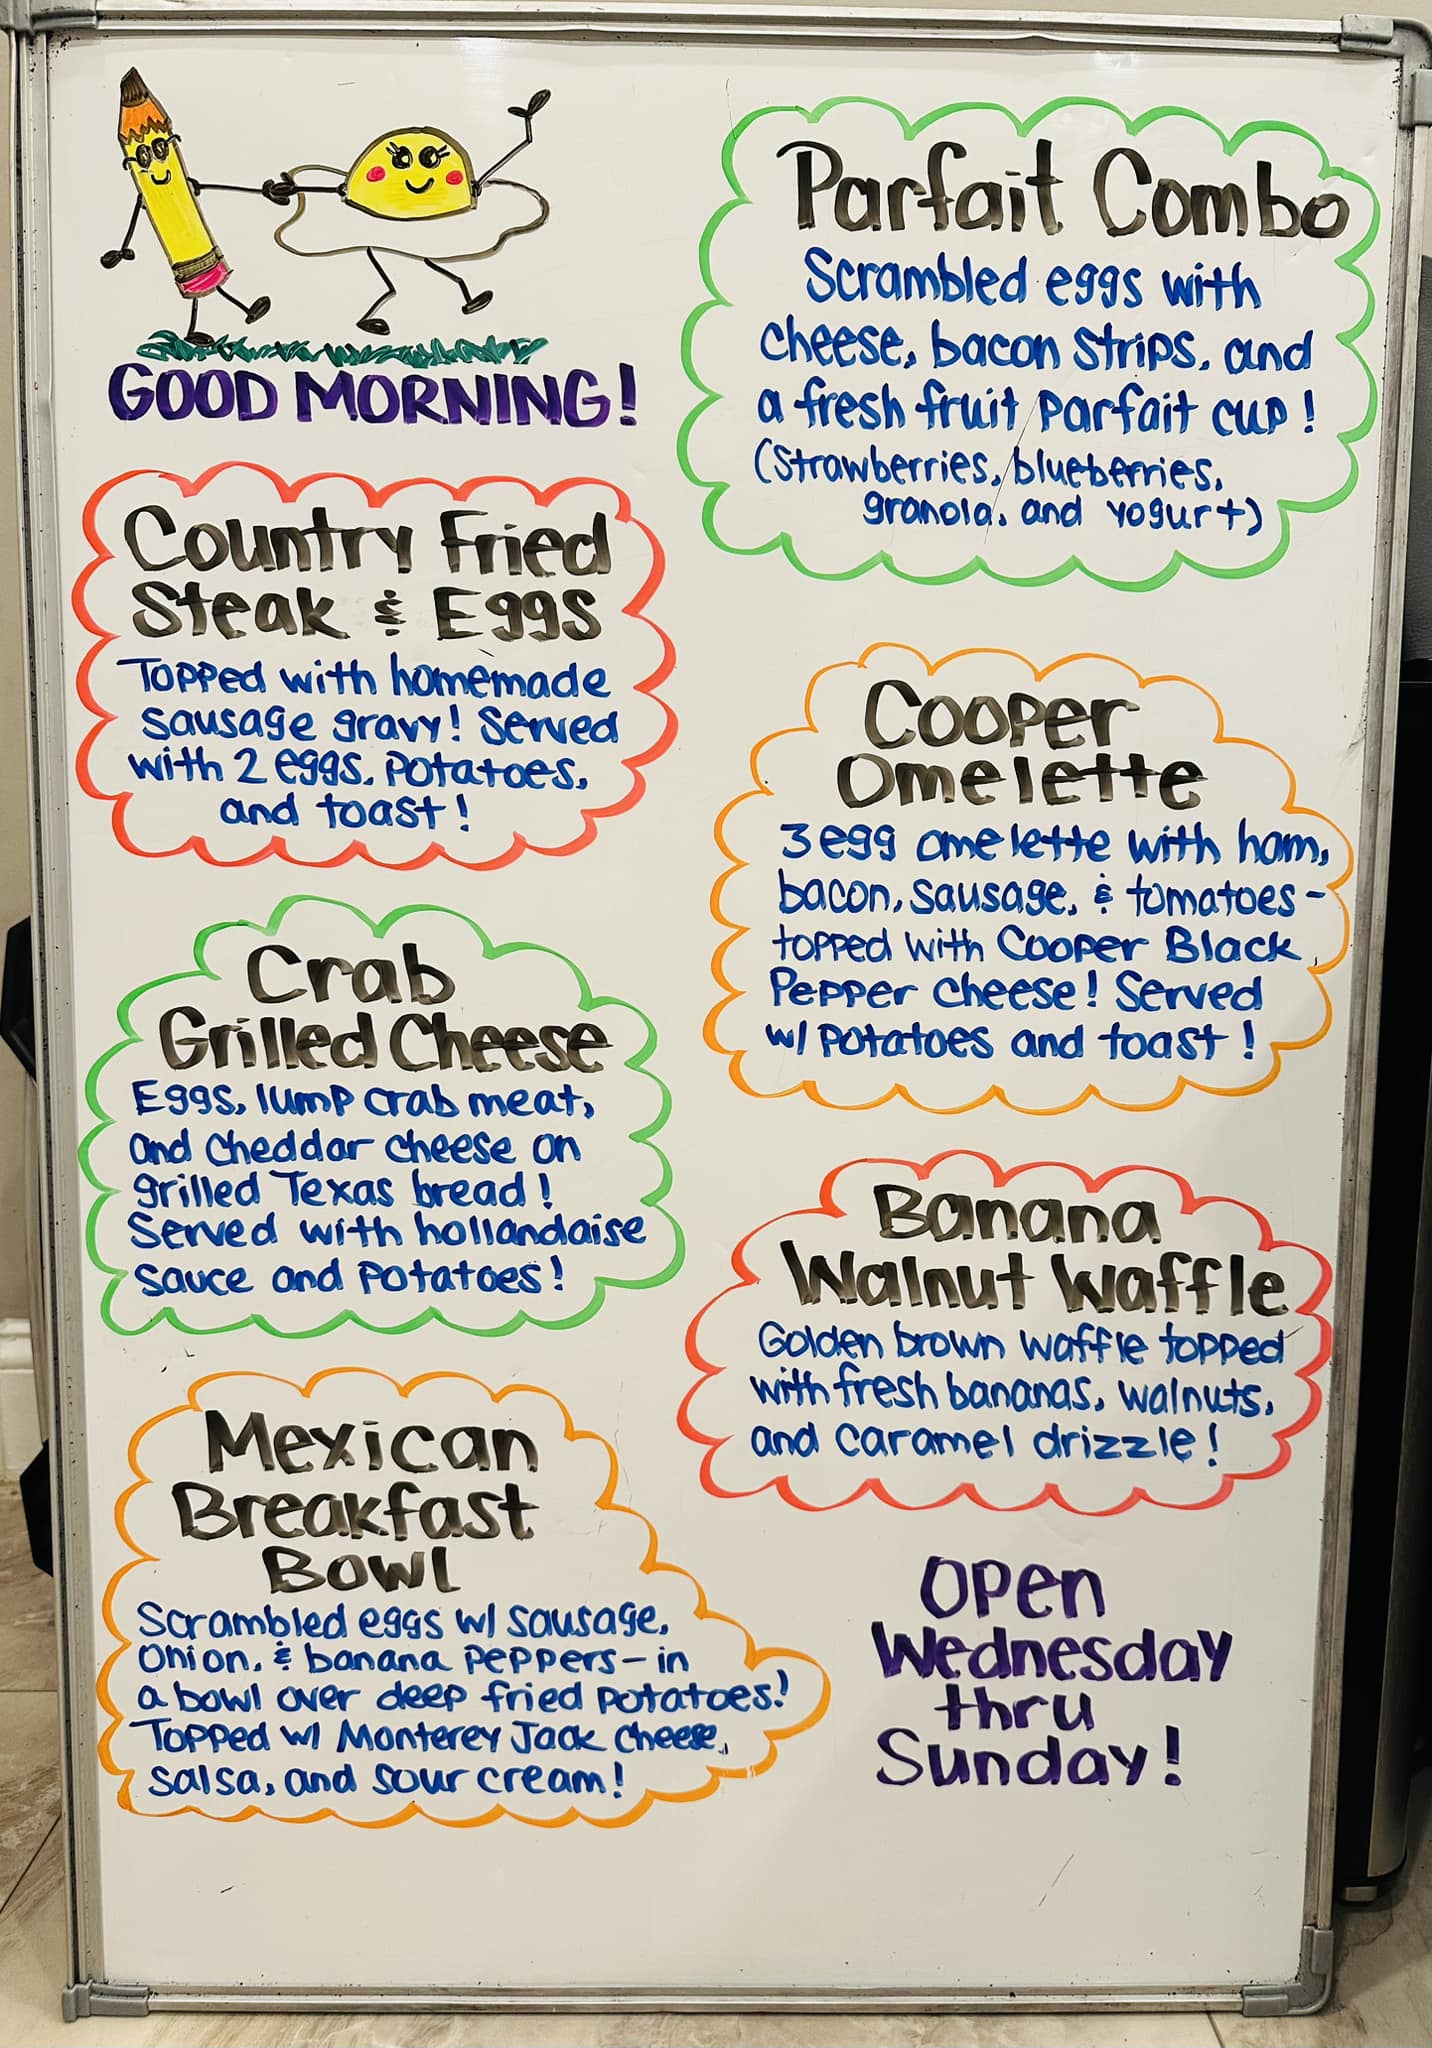 GOOD MORNING!
Country Fried
Steak & Eggs
Topped with homemade
sausage gravy! Served
with 2 eggs, potatoes,
and toast!
Crab
Grilled Cheese
Eggs, lump crab meat,
and cheddar cheese on
grilled Texas bread!
Served with hollandaise
sauce and potatoes!
Mexican
Breakfast
Bowl
Scrambled eggs w/ sausage,
onion, & banana peppers - in
a bowl over deep fried potatoes!
Topped w/ Monterey Jack cheese,
salsa, and sour cream!
Parfait Combo
Scrambled eggs with
cheese, bacon strips, and
a fresh fruit parfait cup!
(strawberries, blueberries,
granola, and yogurt)
Cooper
Omelette
3 egg omelette with ham,
bacon, sausage, & tomatoes -
topped with Cooper Black
Pepper cheese! Served
w/ potatoes and toast!
Banana
Walnut Waffle
Golden brown waffle topped
with fresh bananas, walnuts,
and caramel drizzle!
Open
Wednesday
thru
Sunday!